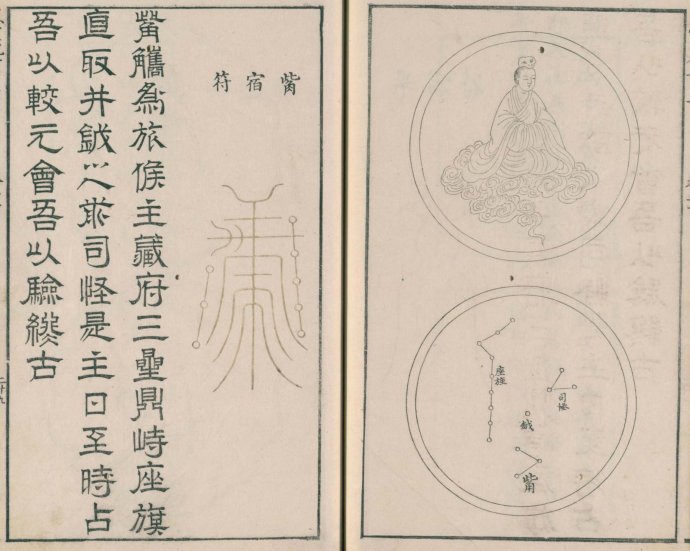 座旗
司怪
鉞
觜
觜宿符
觜觿爲旅候主藏府三曐鼎峙座旗
直取井鉞以司怪是主日至時占
吾以較元會吾以驗古